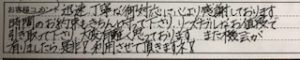 お客様コメント 迅速、丁寧な御対応に心より感謝しております
時間のお約束もきちんと守って下さり、リーズナブルなお値段で
引き取って下さり、大変有難く思っております。また機会が
有りましたら是非!利用させて頂きます!